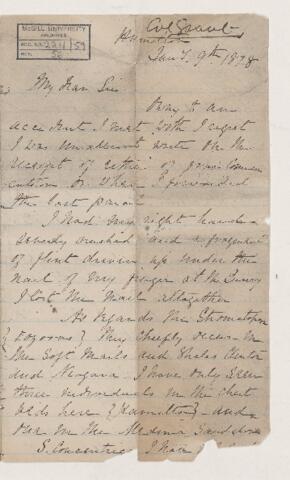 McGILL UNIVERSITY
ARCHIVES
ACC. NO. 2211/59
REF. 56
Col Grant
Hamilton
Jany. 9th 1878
My Dear Sir
Owing to an
accident I met with I regret
I was unable to write on the
receipt of either of your Commun
ications or when I forwarded
the last parcel
I had my right hand
severely crushed and a fragment
of flint driven up under the
nail of my finger at the Quarry
I lost the nail altogether
As regards the Stromatopo
they chiefly occur in
the Soft and Shales Clinton
and Niagara I have only seen
three individuals in the Chert
beds here {Hamilton} and
one in the Medina Sandstone
S. Concentrica I have